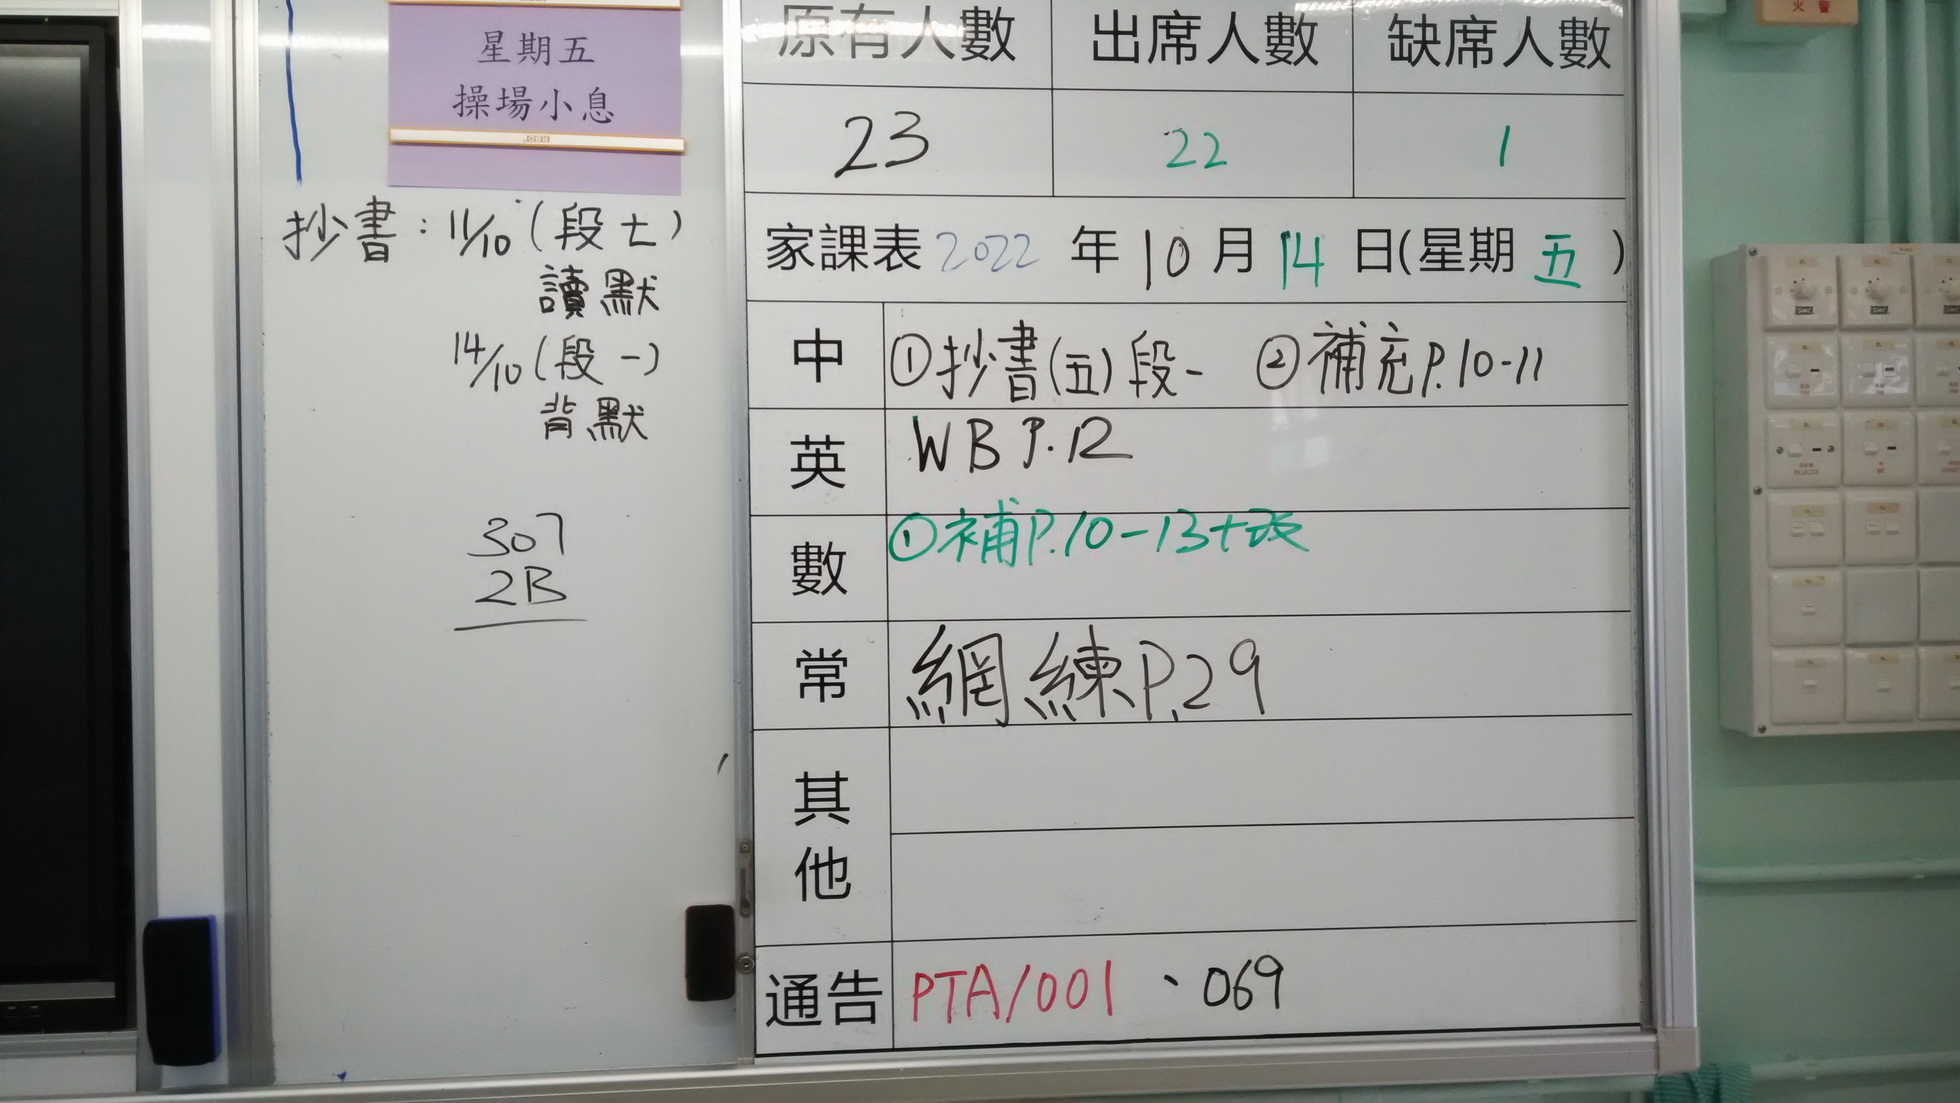 星期五
操場小息
抄書：11/10（段七）
讀默
14/10（段一）
背默
307
2B
原有人數 出席人數 缺席人數
23 22 1
家課表 2022 年 10 月 14 日(星期 五 )
中 ①抄書(五)段一 ②補充P.10-11
英 WB P.12
數 ①補P.10-13+改
常 網練P.29
其他
通告 PTA/001、069
火警